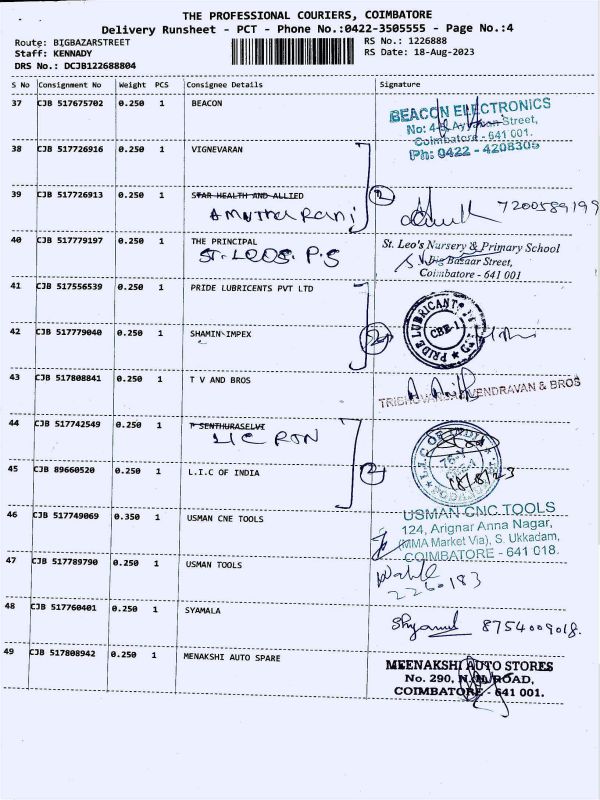 THE PROFESSIONAL COURIERS, COIMBATORE
Delivery Runsheet - PCT - Phone No.:0422-3505555 - Page No.:4
Route: BIGBAZARSTREET RS No.: 1226888
Staff: KENNADY RS Date: 18-Aug-2023
DRS No.: DCJB122688804
S No Consignment No Weight PCS Consignee Details Signature
37 CJB 517675702 0.250 1 BEACON
BEACON ELECTRONICS
Street,
Coimbatore - 641 001.
Ph: 0422 - 4208305
38 CJB 517726916 0.250 1 VIGNEVARAN
39 CJB 517726913 0.250 1 STAR HEALTH AND ALLIED
Amutha Rani 2 7200589199
40 CJB 517779197 0.250 1 THE PRINCIPAL
ST. LEOS. P.S
St. Leo's Nursery & Primary School
Big Bazaar Street,
Coimbatore - 641 001
41 CJB 517556539 0.250 1 PRIDE LUBRICENTS PVT LTD
PRIDE LUBRICANT
CBE-1
42 CJB 517779040 0.250 1 SHAMIN IMPEX
2
43 CJB 517808841 0.250 1 T V AND BROS
& BROS
44 CJB 517742549 0.250 1 P SENTHURASELVI
LIC RTN
L.I.C OF INDIA
45 CJB 89660520 0.250 1 L.I.C OF INDIA
2 18/8/23
46 CJB 517749069 0.350 1 USMAN CNE TOOLS
USMAN CNC TOOLS
124, Arignar Anna Nagar,
(MMA Market Via), S. Ukkadam,
COIMBATORE - 641 018.
47 CJB 517789790 0.250 1 USMAN TOOLS
226183
48 CJB 517760401 0.250 1 SYAMALA
Shyamul 8754009018.
49 CJB 517808942 0.250 1 MENAKSHI AUTO SPARE
MEENAKSHI AUTO STORES
No. 290, N.H. ROAD,
COIMBATORE - 641 001.